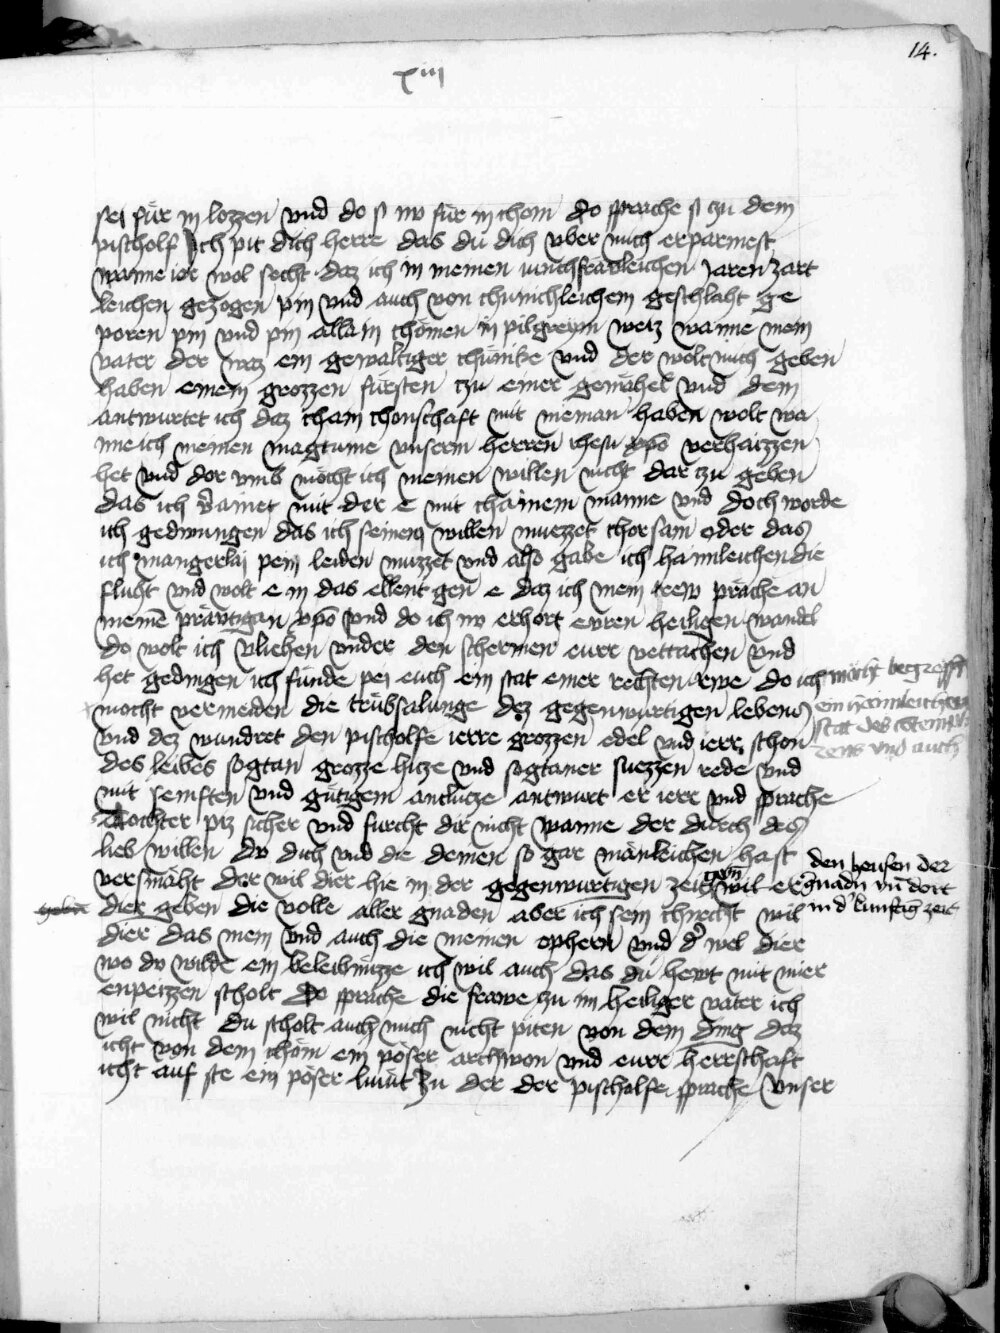 14.
xiij
sei für in lozzen vnd do si nv für in chom do sprache si czu dem
pischolf Ich pit dich herre das du dich vber mich erparmest
wanne ier wol secht daz ich in meinen iunchfräwleichen Jaren zart
leichen gezogen pin vnd auch von chunichleichem geschlaht ge
poren pin vnd pin allain chömen in pilgreym weiz wanne mein
vater der waz ein gewaltiger chünike vnd der wolt mich geben
haben einem grozzen fürsten czu einer gemähel vnd dem
antwurtet ich daz icham chonschaft mit nieman haben wolt wa
nne ich meinen magtume vnserm herren ihesu xpo verhaizzen
het vnd dor vmb möcht ich meinen willen nicht dar czu geben
das ich veraainet mit der e mit chainem manne vnd doch worde
ich gedwungen das ich seinem willen muezzet chorsam oder das
ich mangerlai pein leiden muzzet vnd also gabe ich haimleichen die
flucht vnd wolt e in das ellent gen e daz ich mein trew präche an
meinē präwtigan xpo vnd do ich nv erhort ewren heiligen wandel
do wolt ich vliehen vnder den schermen eurr vettachen vnd
het gedingen ich fünde pei euch ein stat einer rechten rwe do ich möcht begreiffē
ein haimleichen
mocht vermeiden die trübsalunge dez gegenwürtigen lebens
stat des
vnd dez wundret den pischolfe ierre grozzen edel vnd ierr schon
vnd auch
des leibes sogtan grozze hicze vnd sogtaner suezzen rede vnd
mit semften vnd gütigem antlücze antwurt er ierr vnd sprache
Tochter piz sicher vnd furcht dir nicht wanne der durch des
lieb willen dv dich vnd die deinen so gar mänleichen hast
den
der
versmäht der wil dier hie in der gegenwurtigen zeit wil er
gnadn vn̄ dort
dier geben die volle aller gnaden aber ich sein chnecht wil
in d' kunftig zeit
dier das mein vnd auch die meinen ophern vnd d' wel dier
wo dv wilde ein beleibnüzze ich wil auch das du hewt mit mier
enpeizzen scholt Do sprache die frawe czu im heiliger vater ich
wil nicht du scholt auch mich nicht piten von dem ding daz
icht von dem chöm ein pöser archwon vnd eurr herrschaft
icht auf ste ein pöser lumüt Zu der der pischolfe sprache vnser